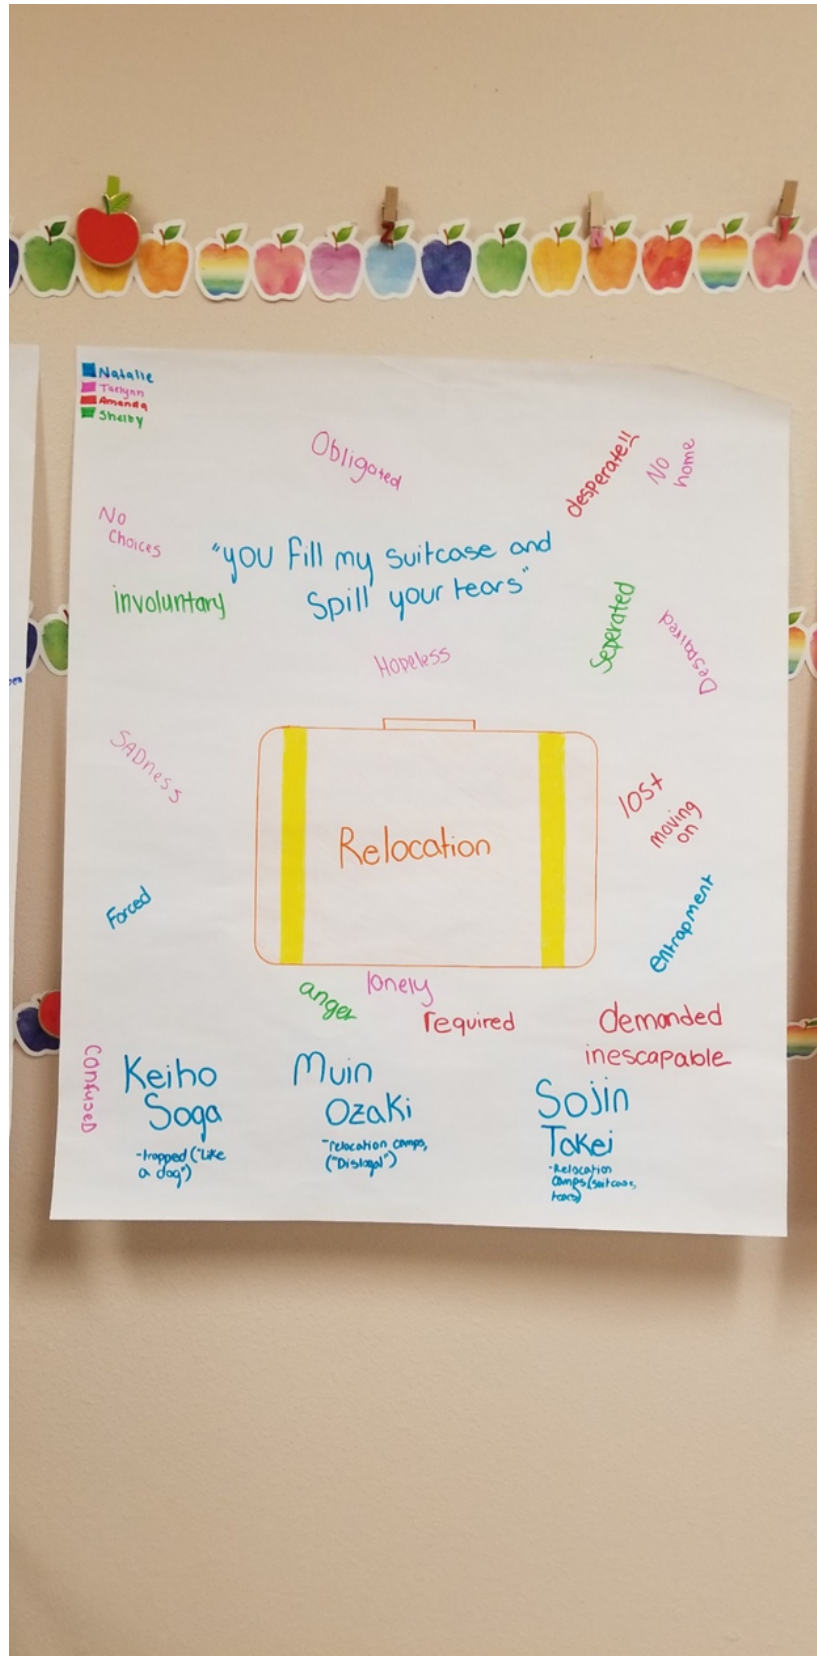 Natalie
Taelynn
Amanda
Shelby
Obligated
desperate!!
No
home
No
Choices
"you fill my suitcase and
Spill your tears"
involuntary
Seperated
Despaired
Hopeless
SADness
Relocation
lost
moving
on
Forced
entrapment
anger
lonely
required
demanded
inescapable
confuseD
Keiho
Soga
-trapped ("Like
a dog")
Muin
Ozaki
-relocation camps,
("Disloyal")
Sojin
Takei
-Relocation
camps (suitcase,
tears)